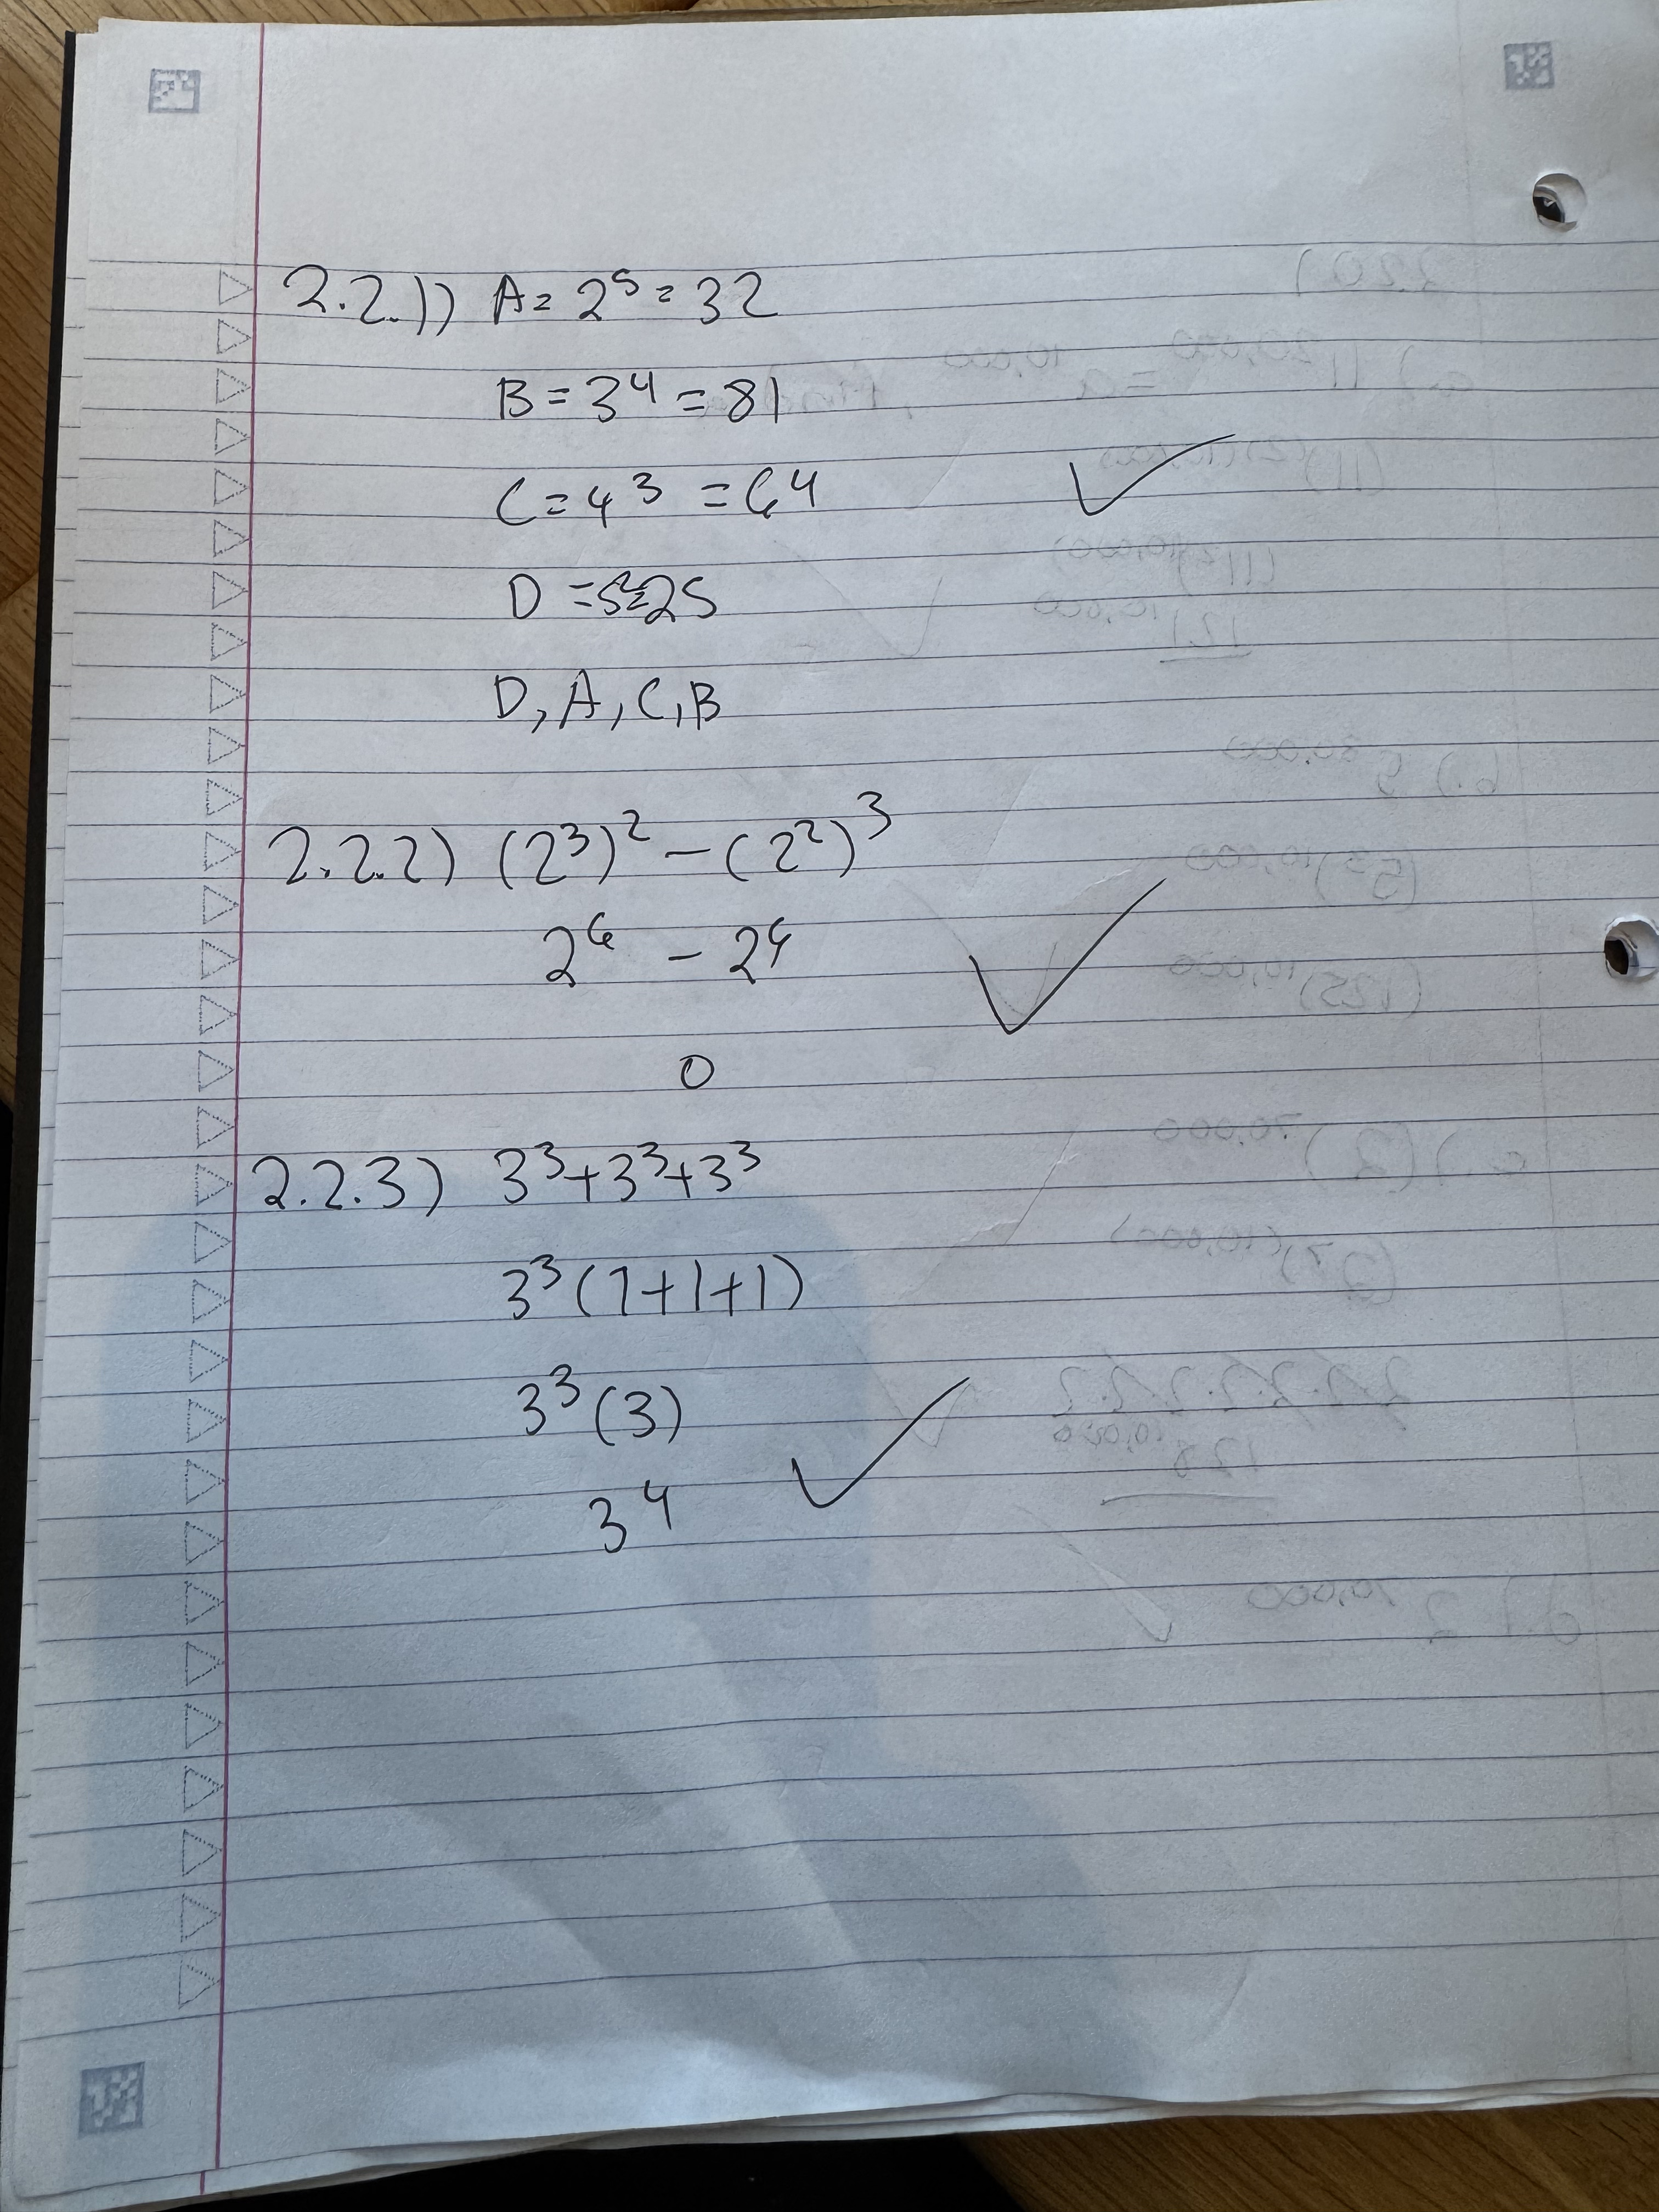 2.2.1) A = 2⁵ = 32
B = 3⁴ = 81
C = 4³ = 64
D = 5² = 25
D, A, C, B
2.2.2) (2³)² - (2²)³
2⁶ - 2⁶
0
2.2.3) 3³+3³+3³
3³(1+1+1)
3³(3)
3⁴